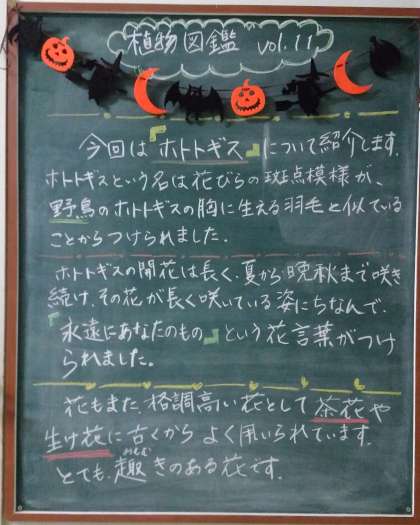 植物図鑑 vol.11
今回は『ホトトギス』について紹介します。
ホトトギスという名は花びらの斑点模様が、
野鳥のホトトギスの胸に生える羽毛と似ている
ことからつけられました。
ホトトギスの開花は長く、夏から晩秋まで咲き
続け、その花が長く咲いている姿にちなんで、
『永遠にあなたのもの』という花言葉がつけ
られました。
花もまた、格調高い花として茶花や
生け花に古くからよく用いられています。
とても、趣きのある花です。
おもむ